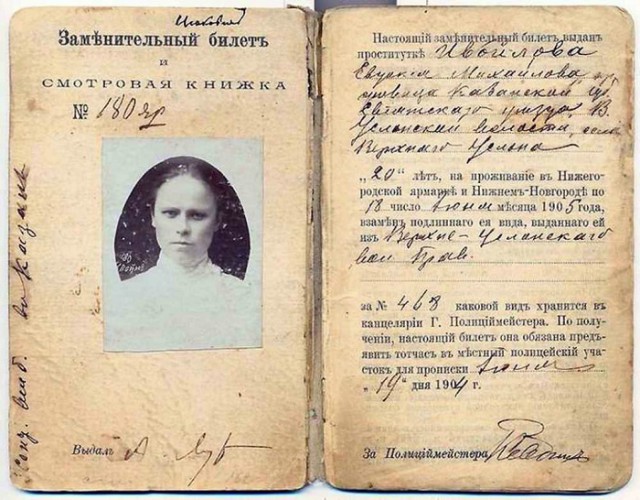 Замѣнительный билетъ
и
СМОТРОВАЯ КНИЖКА
№ 180 яр
Выдалъ А.
Настоящій замѣнительный билетъ выданъ
проституткѣ Ивойлова
Евдокія Михайлова кре
Казанской губ.
Свіяжскаго уѣзда, В.
Услонской волости, село
Верхняго Услона
„20" лѣтъ, на проживаніе въ Нижего-
родской армаркѣ и Нижнемъ-Новгородѣ по
18 число Іюня мѣсяца 1905 года,
взамѣнъ подлиннаго ея вида, выданнаго ей
изъ Верхне-Услонскаго
вол Прав.
за № 468 каковой видъ хранится въ
канцеляріи Г. Полиціймейстера. По полу-
ченіи, настоящій билетъ она обязана предъ-
явить тотчасъ въ мѣстный полицейскій уча-
стокъ для прописки Іюня
„19" дня 1904 г.
За Полиціймейстера